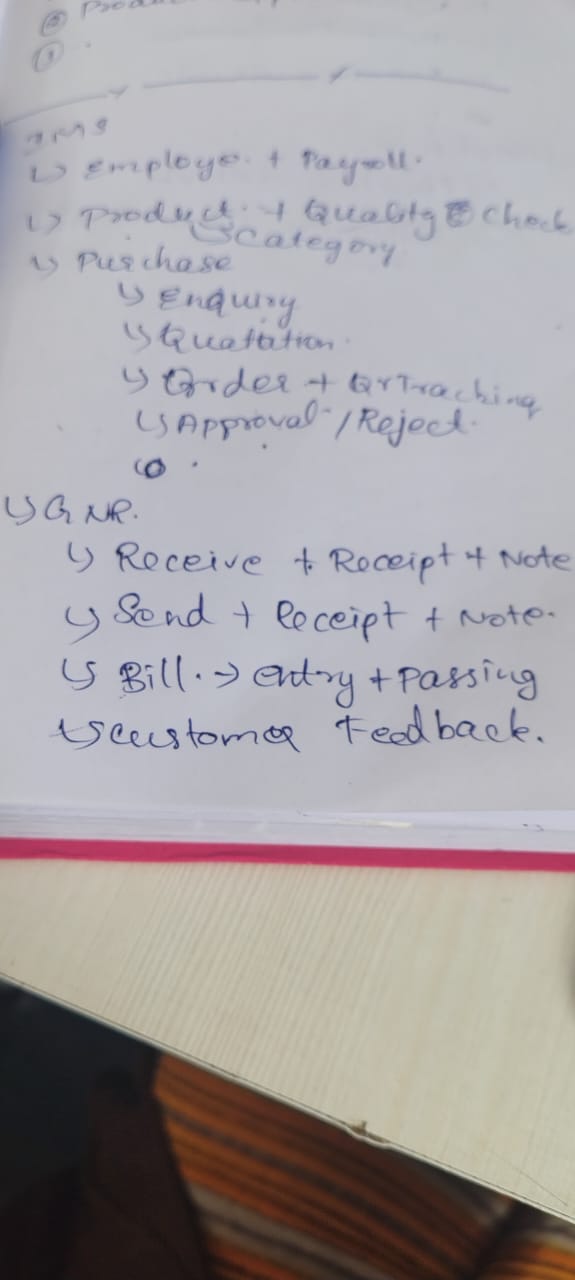 ② Prod
①
IMS
↳ Employe. + Payroll.
↳ Product. + Quality Check
↳ Category
↳ Purchase
↳ Enquiry
↳ Quattation.
↳ Order + QR Tracking
↳ Approval / Reject.
↳ GNR.
↳ Receive + Receipt + Note
↳ Send + Receipt + Note.
↳ Bill. → entry + Passing
↳ Customer Feedback.